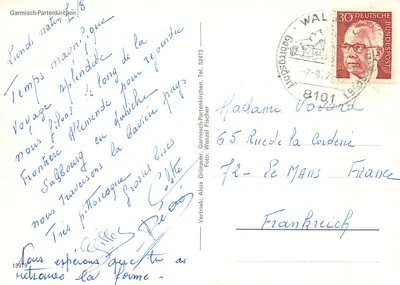 Garmisch-Partenkirchen
Lundi matin 7/8
Temps magnifique
Voyage splendide
nous filons le long de la
Frontière Allemande pour rejoindre
Salzbourg en Autriche
nous traversons la Bavière pays
Très pittoresque Grosses bises
Colette
Gilles
Nous espérons que tu as
retrouvé la forme.
Vertrieb: Alois Grünauer, Garmisch-Partenkirchen, Tel. 52473
Foto: Wenzel Fischer
WAL
8101
30
DEUTSCHE
BUNDESPOST
Madame
65 Rue de la Corderie
72 - Le Mans France
Frankreich